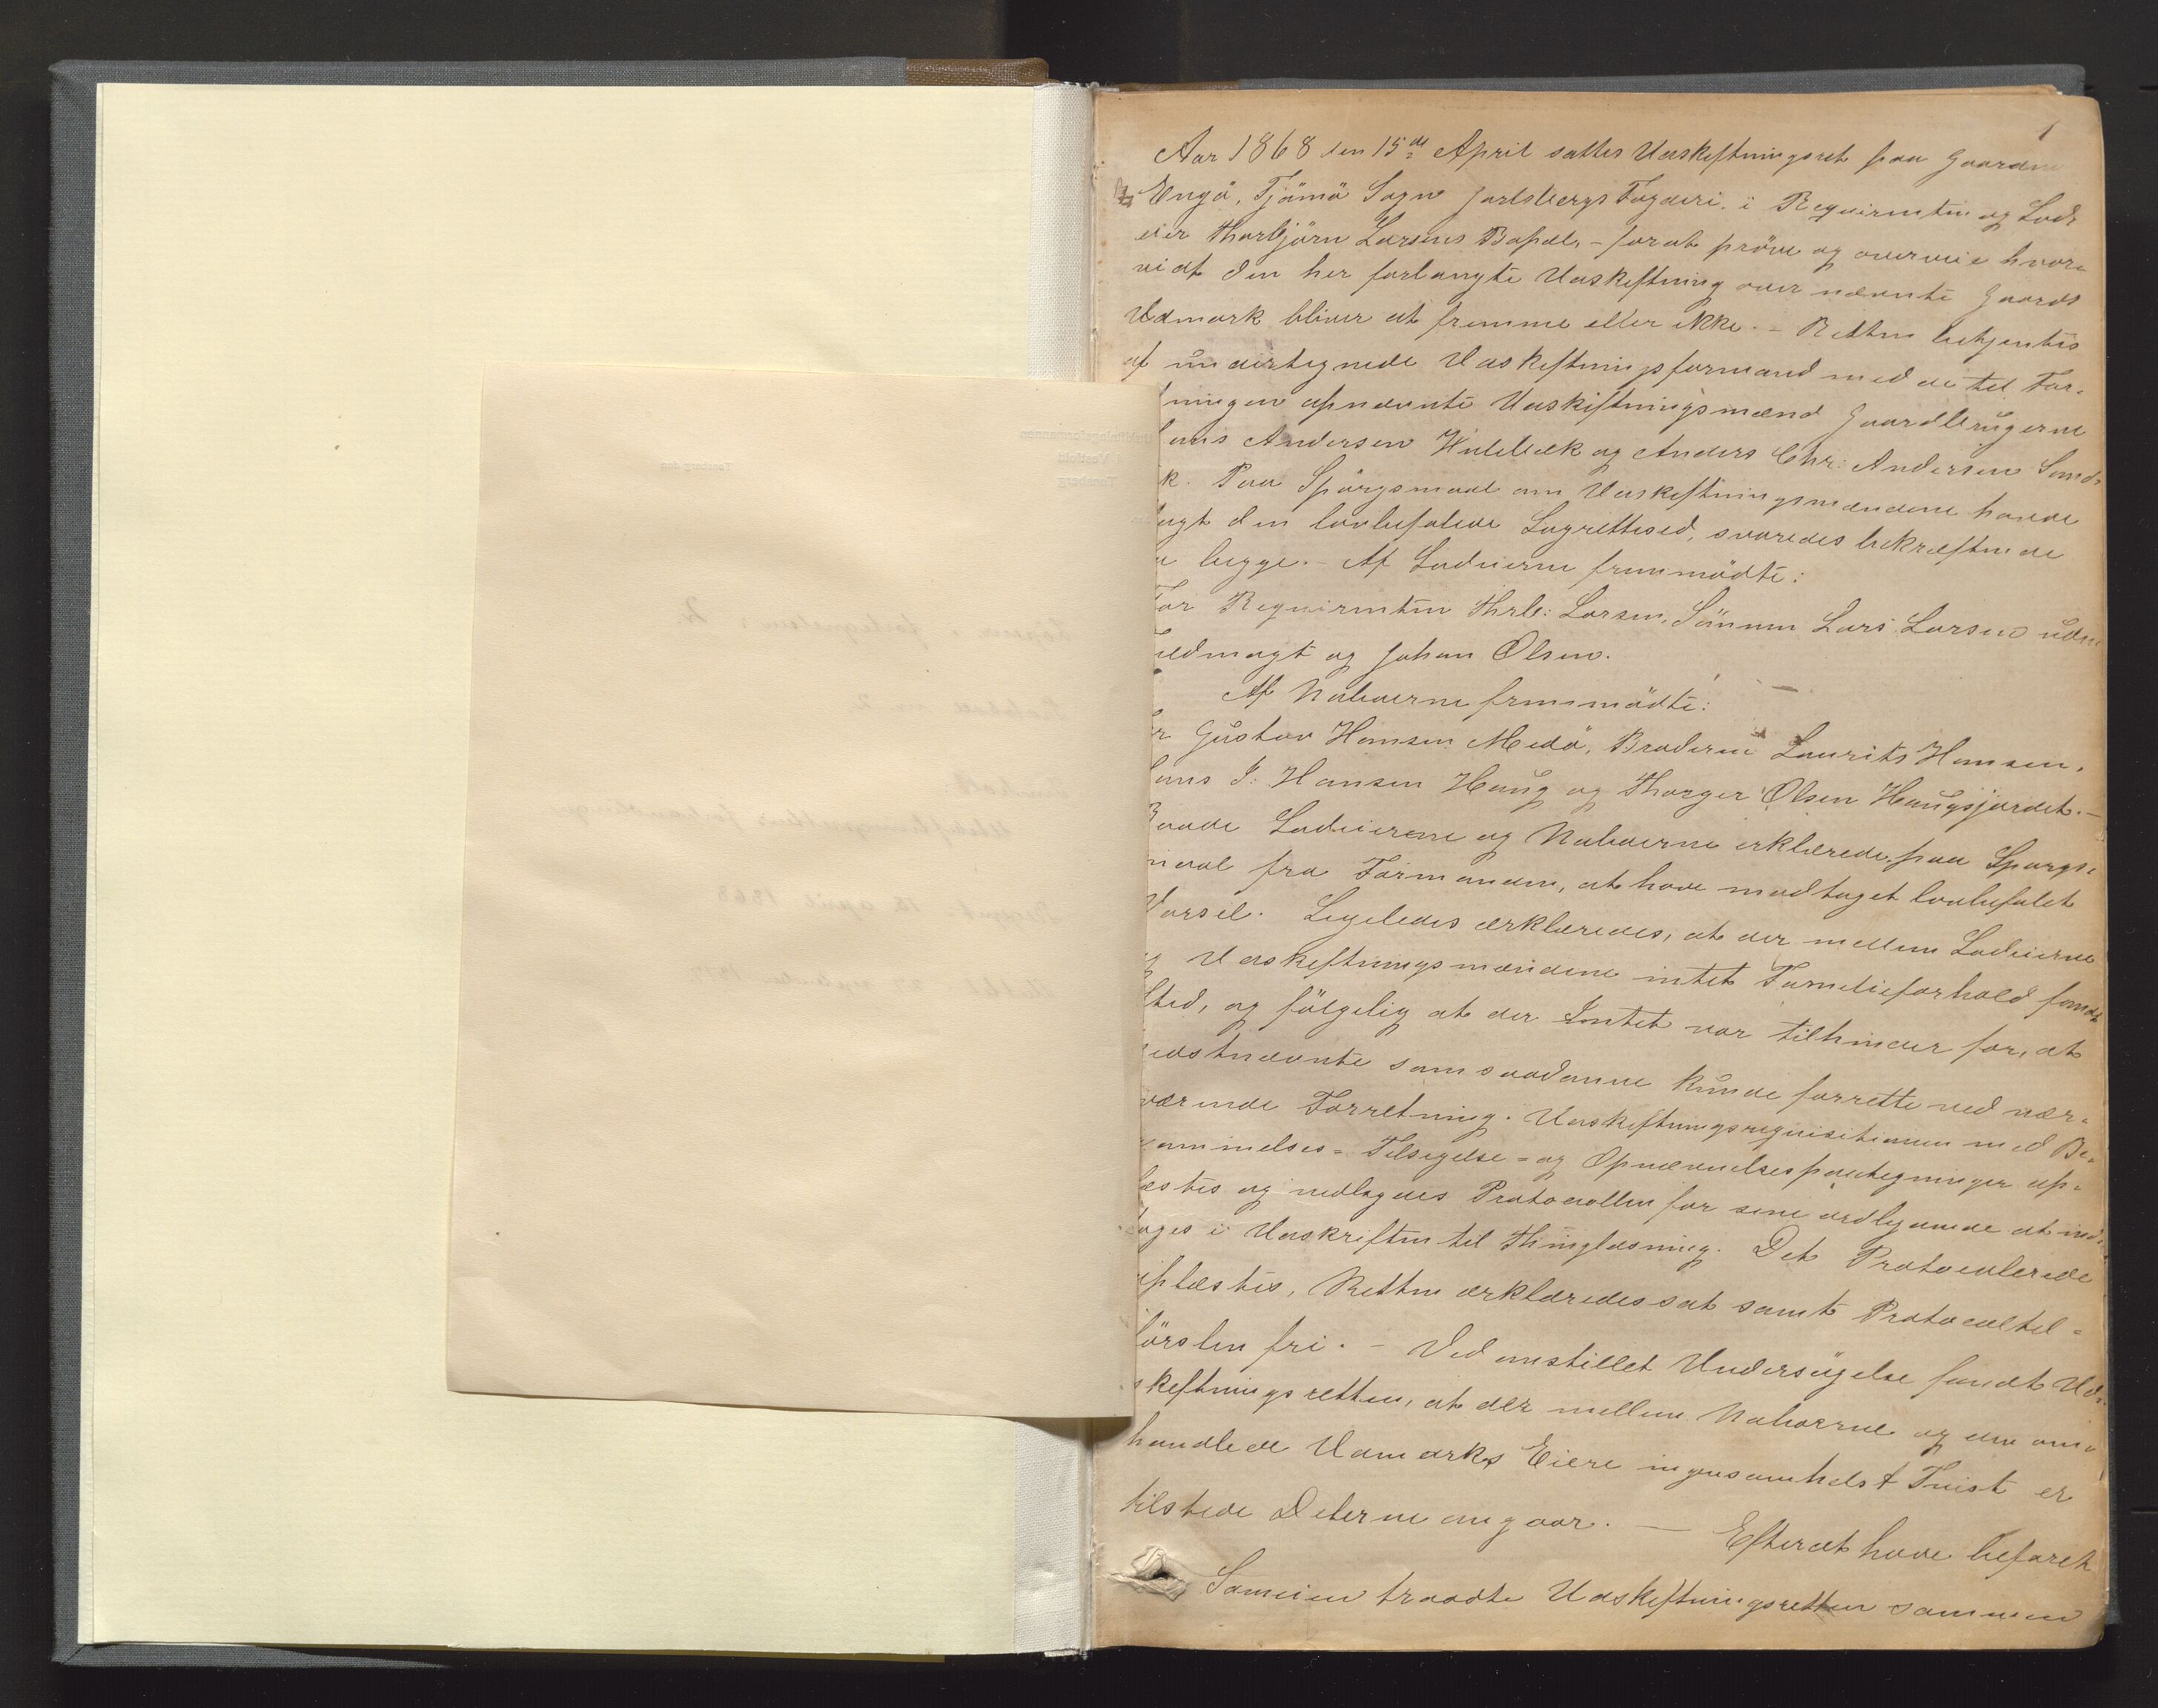 1
Aar 1868 den 15de April sattes Udskiftningsret paa Gaarden
Engö, Tjömö Sogn Jarlsbergs Fogderi, i Requirenten og Lods
eier Thorbjörn Larsens Bopæl, – forat pröve og overveie hvor-
vidt den her forlangte Udskiftning over nævnte Gaards
Udmark bliver at fremme eller ikke. – Retten betjentes
af undertegnede Udskiftningsformand med de til For-
ningen opnævnte Udskiftningsmænd Gaardbrugerne
ans Andersen Hulebæk og Anders Chr: Andersen Sand-
k. Paa Spörgsmaal om Udskiftningsmændene havde
agt den lovbefalede Lagrettesed, svaredes bekræftende
begge. – Af Lodeierne fremmödte:
For Requirenten Thrb: Larsen, Sönnen Lars Larsen uden
uldmagt og Johan Olsen.
Af Naboerne fremmödte:
r Gustav Hansen Medö, Broderen Laurits Hansen,
ans J: Hansen Haug og Thorger Olsen Haugsjordet. –
Baade Lodeierne og Naboerne erklærede, paa Spörgs-
maal fra Formanden, at have modtaget lovbefalet
Varsel. Ligeledes erklæredes, at der mellem Lodeierne
og Udskiftningsmændene intet Familieforhold fandt
sted, og fölgelig at der Intet var tilhinder for, at
sidstnævnte som saadanne kunde forrette ved nær-
værende Forretning. Udskiftningsrequisitionen med Be-
rammelses- Tilsigelse- og Opnævnelsespaategninger op-
læstes og nedlagdes Protocollen for sine vedliggende at ind-
tages i Udskriften til Thinglæsning. Det Protocolerede
oplæstes, Retten erklæredes sat samt Protocoltil-
förslen fri. – Ved anstillet Undersögelse fandt Ud-
skiftningsretten, at der mellem Naboerne og den om-
handlede Udmarks Eiere ingensomhelst Tvist er
tilstede Delerne angaar. – Efterat have befaret
Sameien traadte Udskiftningsretten sammen
Vestfold
Tønsberg
Tønsberg den
15 april 1868